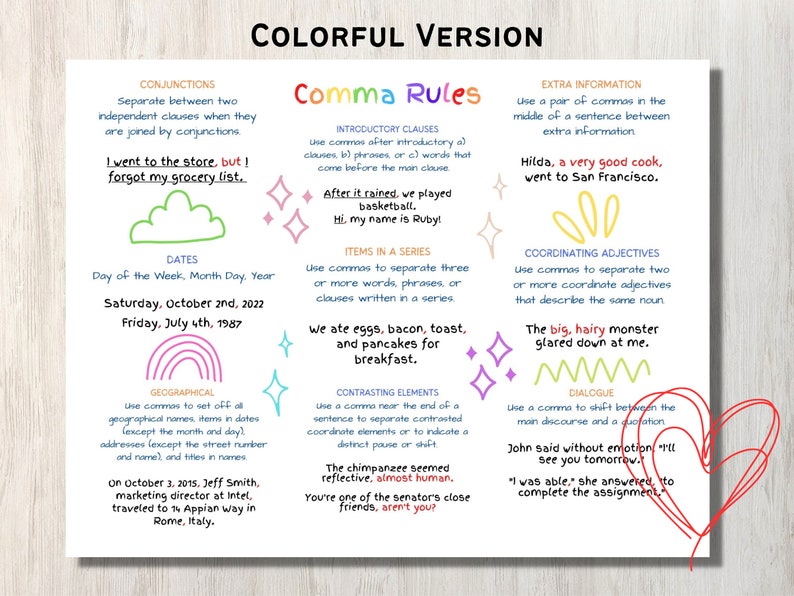 COLORFUL VERSION
Comma Rules
CONJUNCTIONS
Separate between two
independent clauses when they
are joined by conjunctions.
I went to the store, but I
forgot my grocery list.
INTRODUCTORY CLAUSES
Use commas after introductory a)
clauses, b) phrases, or c) words that
come before the main clause.
After it rained, we played
basketball.
Hi, my name is Ruby!
EXTRA INFORMATION
Use a pair of commas in the
middle of a sentence between
extra information.
Hilda, a very good cook,
went to San Francisco.
DATES
Day of the Week, Month Day, Year
Saturday, October 2nd, 2022
Friday, July 4th, 1987
ITEMS IN A SERIES
Use commas to separate three
or more words, phrases, or
clauses written in a series.
We ate eggs, bacon, toast,
and pancakes for
breakfast.
COORDINATING ADJECTIVES
Use commas to separate two
or more coordinate adjectives
that describe the same noun.
The big, hairy monster
glared down at me.
GEOGRAPHICAL
Use commas to set off all
geographical names, items in dates
(except the month and day),
addresses (except the street number
and name), and titles in names.
On October 3, 2015, Jeff Smith,
marketing director at Intel,
traveled to 14 Appian Way in
Rome, Italy.
CONTRASTING ELEMENTS
Use a comma near the end of a
sentence to separate contrasted
coordinate elements or to indicate a
distinct pause or shift.
The chimpanzee seemed
reflective, almost human.
You're one of the senator's close
friends, aren't you?
DIALOGUE
Use a comma to shift between the
main discourse and a quotation.
John said without emotion, "I'll
see you tomorrow."
"I was able," she answered, "to
complete the assignment."